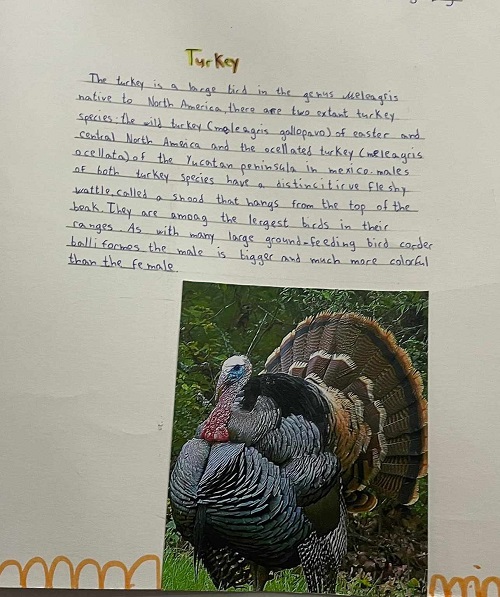 Turkey
The turkey is a large bird in the genus Meleagris
native to North America, there are two extant turkey
species: the wild turkey (meleagris gallopavo) of easter and
central North America and the ocellated turkey (meleagris
ocellata) of the Yucatan peninsula in mexico. males
of both turkey species have a distincitirve fleshy
wattle, called a snood that hangs from the top of the
beak. They are amoag the lergest birds in their
ranges. As with many large ground-feeding bird corder
balli formes the male is bigger and much more colorful
than the female.